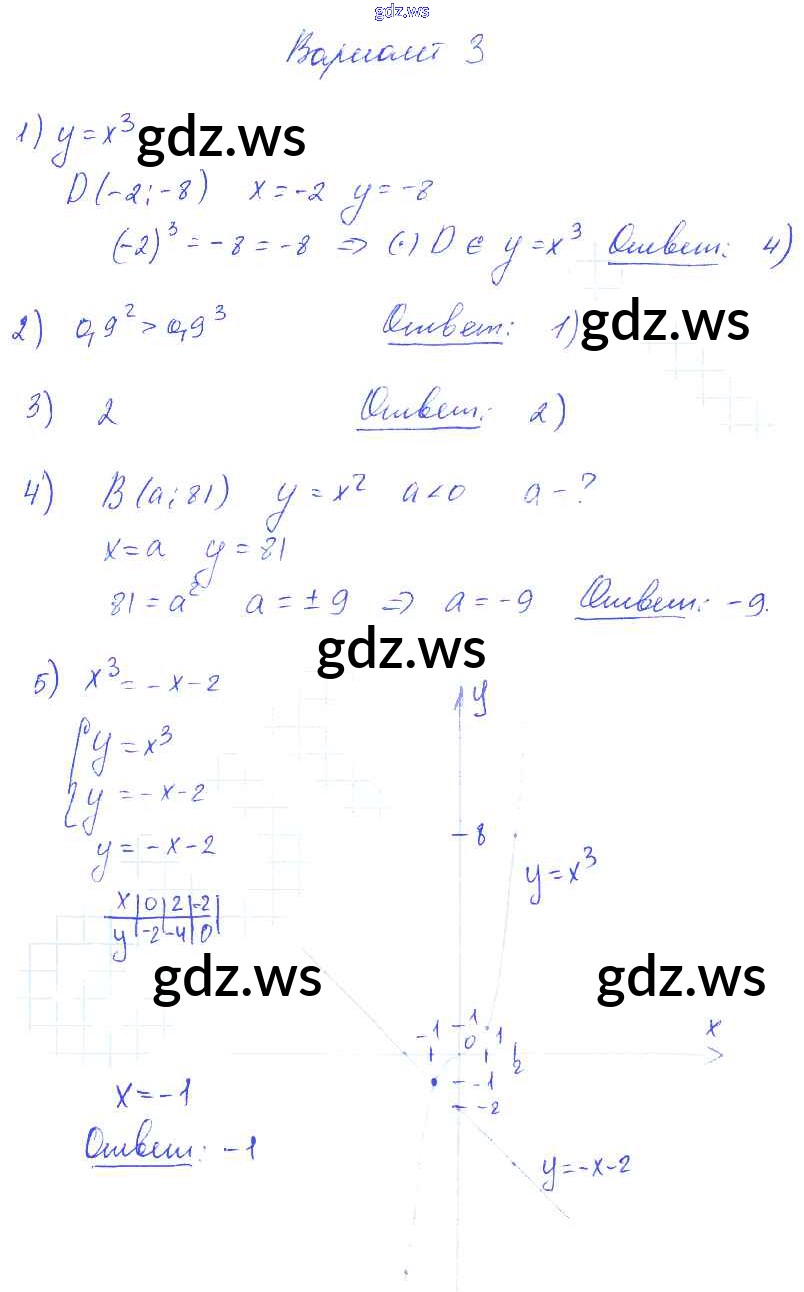 gdz.ws
Вариант 3
1) y = x³ gdz.ws
D(-2; -8) x = -2 y = -8
(-2)³ = -8 = -8 ⇒ (·) D ∈ y = x³ Ответ: 4)
2) 0,9² > 0,9³ Ответ: 1) gdz.ws
3) 2 Ответ: 2)
4) B(a; 81) y = x² a < 0 a - ?
x = a y = 81
81 = a² a = ± 9 ⇒ a = -9 Ответ: -9.
gdz.ws
5) x³ = -x-2
{ y = x³
y = -x-2
y = -x-2
x | 0 | 2 | -2 |
y | -2 | -4 | 0 |
gdz.ws gdz.ws
x = -1
Ответ: -1
y
8
y = x³
1
-1 0 1 2 x
-1
-2
y = -x-2